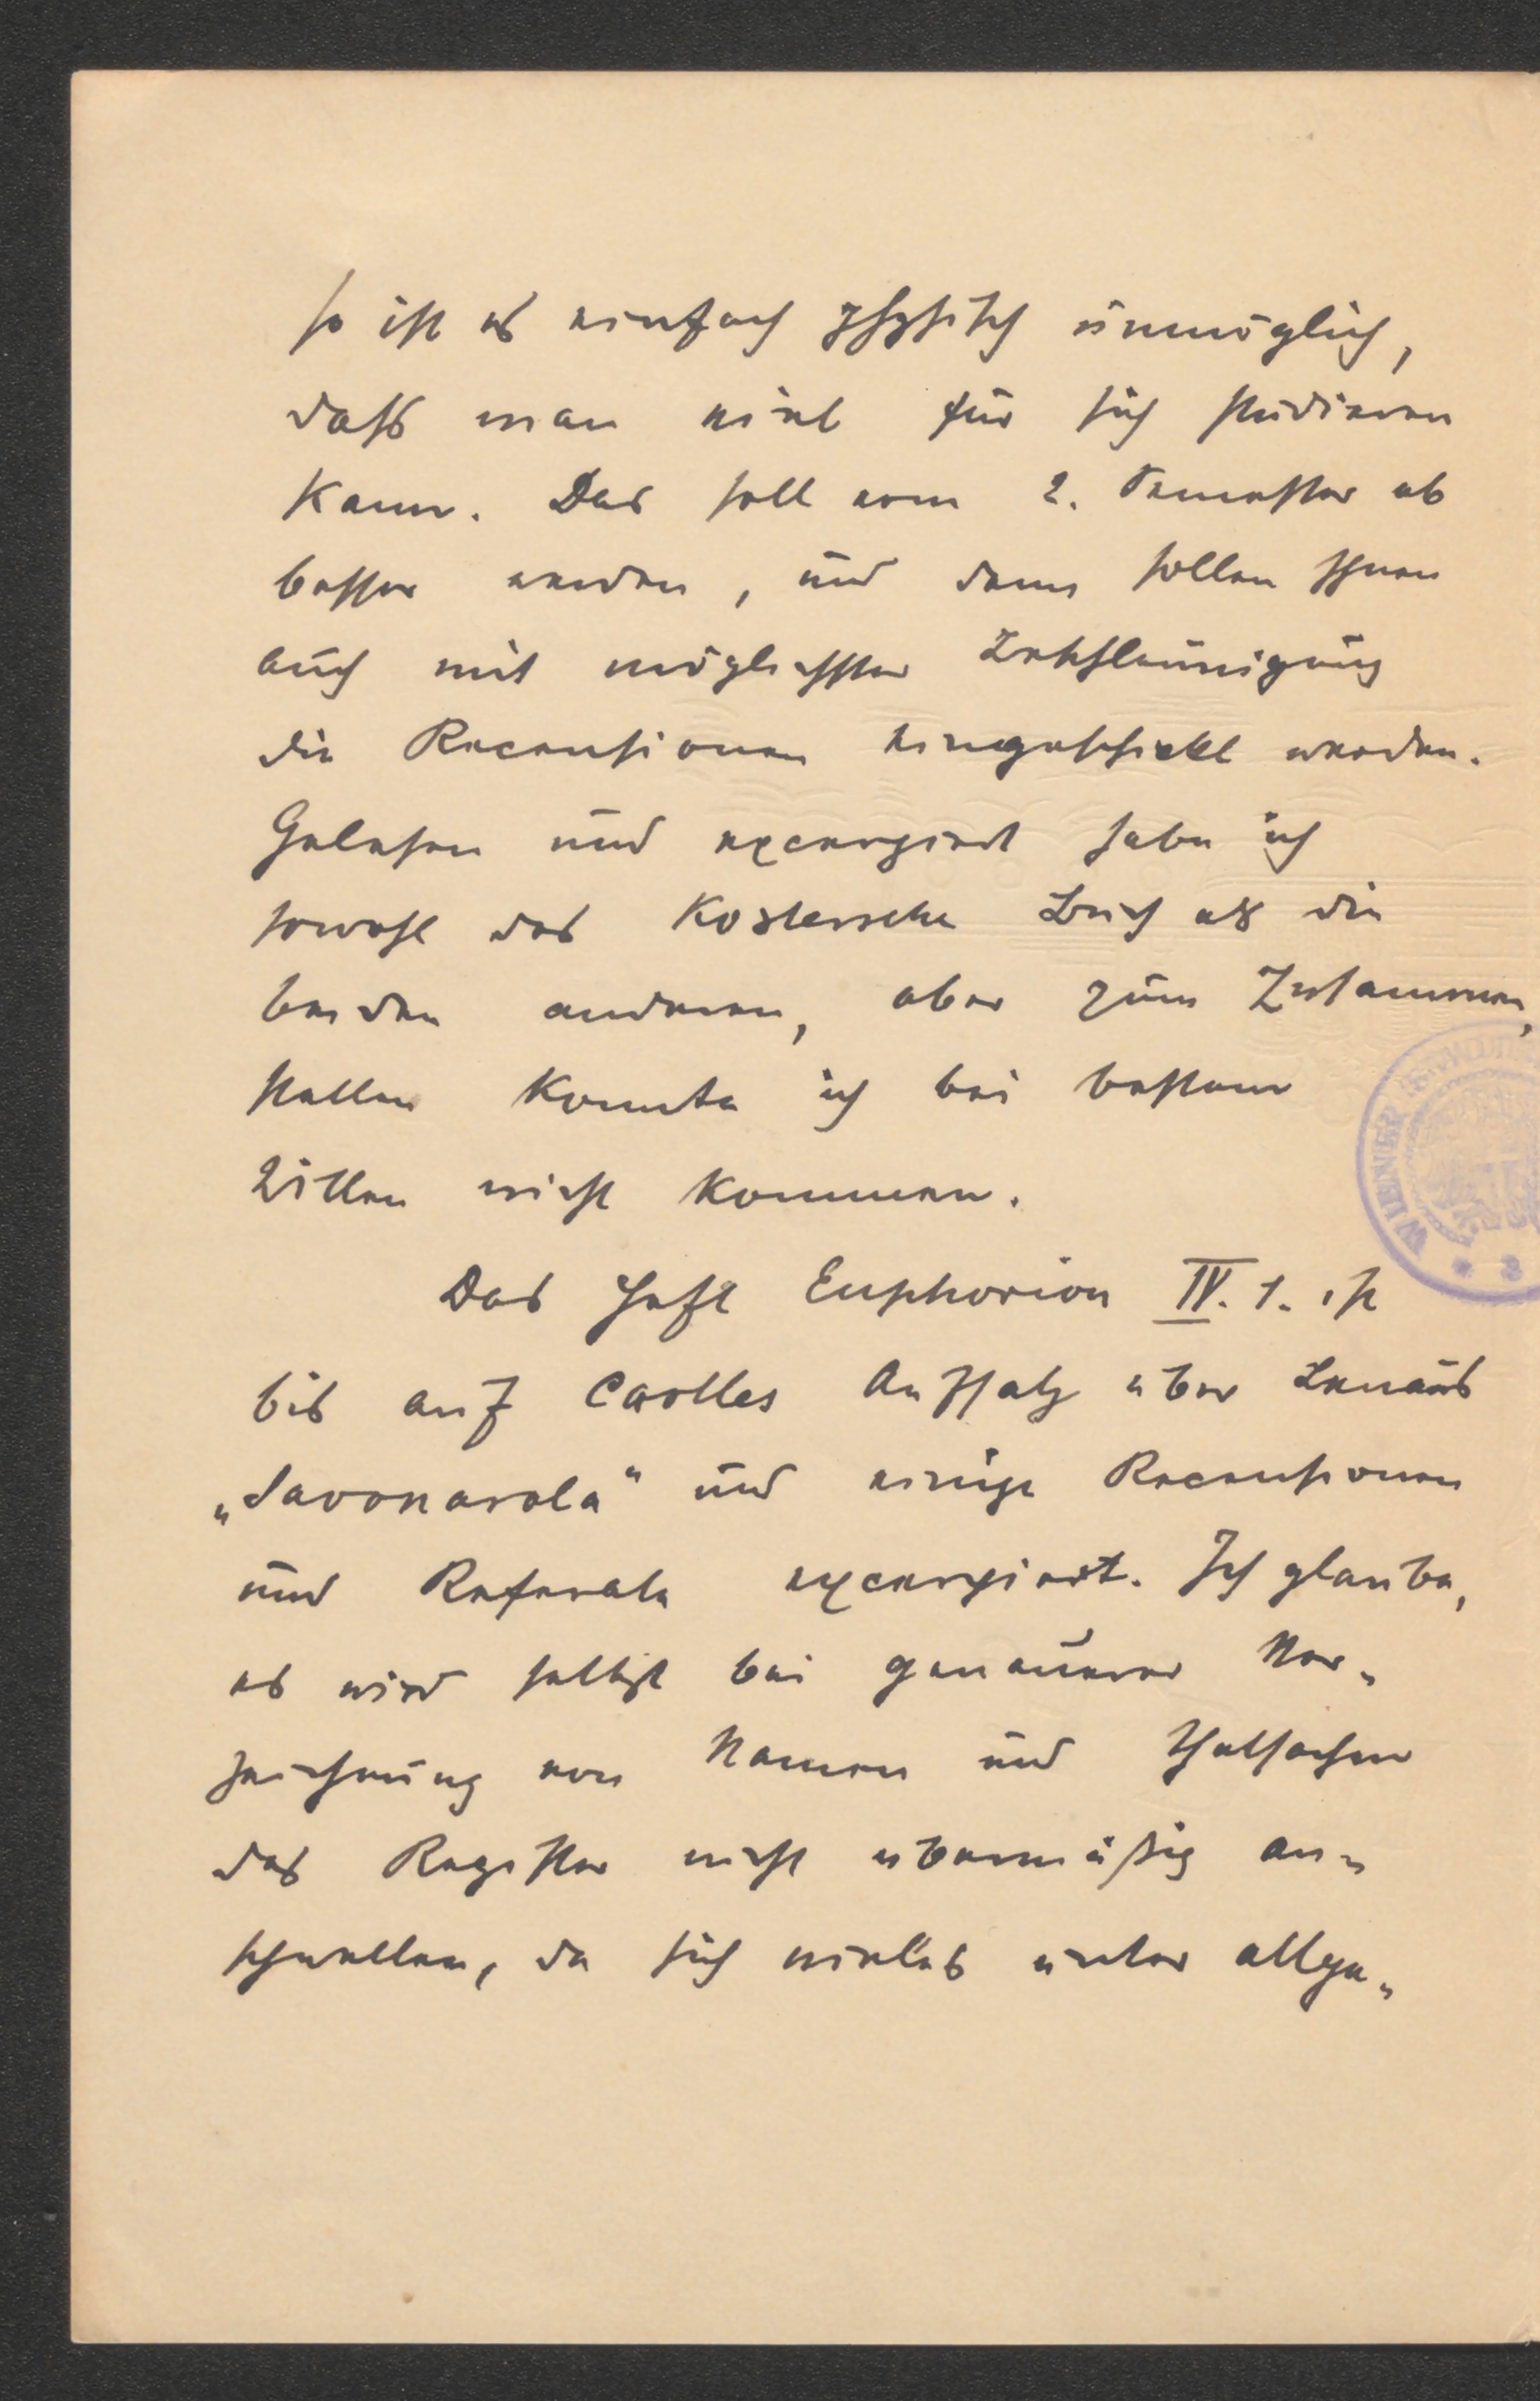 so ist es einfach physisch unmöglich,
daß man viel für sich studieren
kann. Das soll vom 2. Semester ab
besser werden, und dann sollen Ihnen
auch mit möglichster Beschleunigung
die Recensionen eingeschickt werden.
Gelesen und excerpiert habe ich
sowohl das Kostersche Buch als die
beiden anderen, aber zum Zusammen-
stellen konnte ich bei bestem
Willen nicht kommen.
Das Heft Euphorion IV. 1. ist
bis auf Castles Aufsatz über Lenaus
„Savonarola“ und einige Recensionen
und Referate excerpiert. Ich glaube,
es wird selbst bei genauerer Ver-
zeichnung von Namen und Thatsachen
das Register nicht übermäßig an-
schwellen, da sich vieles unter allge-
WIENER